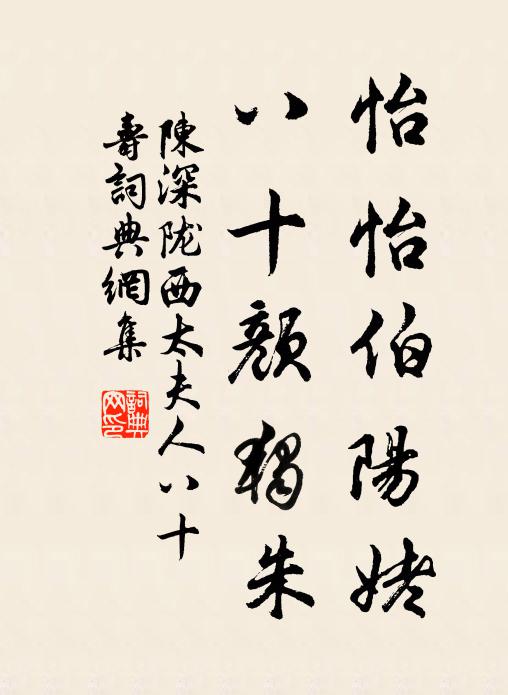 怡怡伯陽姥
八十顏獨朱
陳深陇西太夫人八十
壽詞典網集
詞典
网印